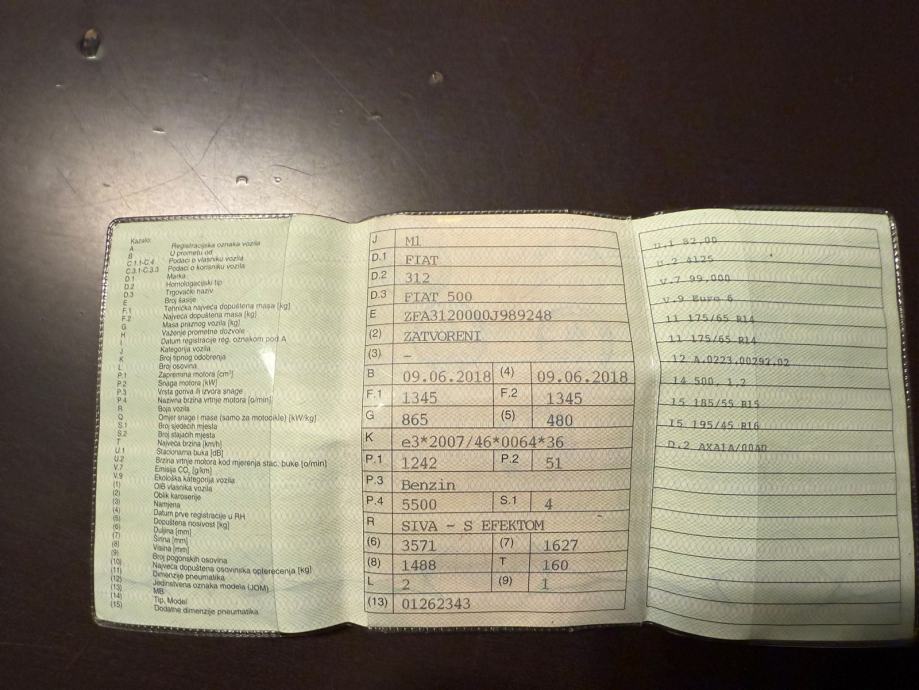 Kazalo:
A Registracijska oznaka vozila
B U prometu od
C.1.1-C.4 Podaci o vlasniku vozila
C.3.1-C.3.3 Podaci o korisniku vozila
D.1 Marka
D.2 Homologacijski tip
D.3 Trgovački naziv
E Broj šasije
F.1 Tehnička najveća dopuštena masa [kg]
F.2 Najveća dopuštena masa [kg]
G Masa praznog vozila [kg]
H Važenje prometne dozvole
I Datum registracije reg. oznakom pod A
J Kategorija vozila
K Broj tipnog odobrenja
L Broj osovina
P.1 Zapremina motora [cm³]
P.2 Snaga motora [kW]
P.3 Vrsta goriva ili izvora snage
P.4 Nazivna brzina vrtnje motora [o/min]
R Boja vozila
Q Omjer snage i mase (samo za motocikle) [kW/kg]
S.1 Broj sjedećih mjesta
S.2 Broj stajaćih mjesta
T Najveća brzina [km/h]
U.1 Stacionarna buka [dB]
U.2 Brzina vrtnje motora kod mjerenja stac. buke [o/min]
V.7 Emisija CO₂ [g/km]
V.9 Ekološka kategorija vozila
(1) OIB vlasnika vozila
(2) Oblik karoserije
(3) Namjena
(4) Datum prve registracije u RH
(5) Dopuštena nosivost [kg]
(6) Duljina [mm]
(7) Širina [mm]
(8) Visina [mm]
(9) Broj pogonskih osovina
(10) Najveća dopuštena osovinska opterećenja [kg]
(11) Dimenzije pneumatika
(12) Jedinstvena oznaka modela (JOM)
(13) MB
(14) Tip, Model
(15) Dodatne dimenzije pneumatika
J M1
D.1 FIAT
D.2 312
D.3 FIAT 500
E ZFA3120000J989248
(2) ZATVORENI
(3) –
B 09.06.2018 (4) 09.06.2018
F.1 1345 F.2 1345
G 865 (5) 480
K e3*2007/46*0064*36
P.1 1242 P.2 51
P.3 Benzin
P.4 5500 S.1 4
R SIVA - S EFEKTOM
(6) 3571 (7) 1627
(8) 1488 T 160
L 2 (9) 1
(13) 01262343
U.1 82,00
U.2 4125
V.7 99,000
V.9 Euro 6
11 175/65 R14
11 175/65 R14
12 A.0223.00292.02
14 500, 1,2
15 185/55 R15
15 195/45 R16
D.2 AXA1A/00AD